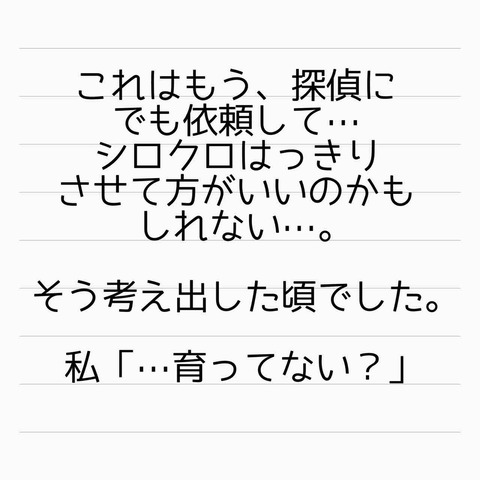 これはもう、探偵に
でも依頼して…
シロクロはっきり
させて方がいいのかも
しれない…。
そう考え出した頃でした。
私「…育ってない？」